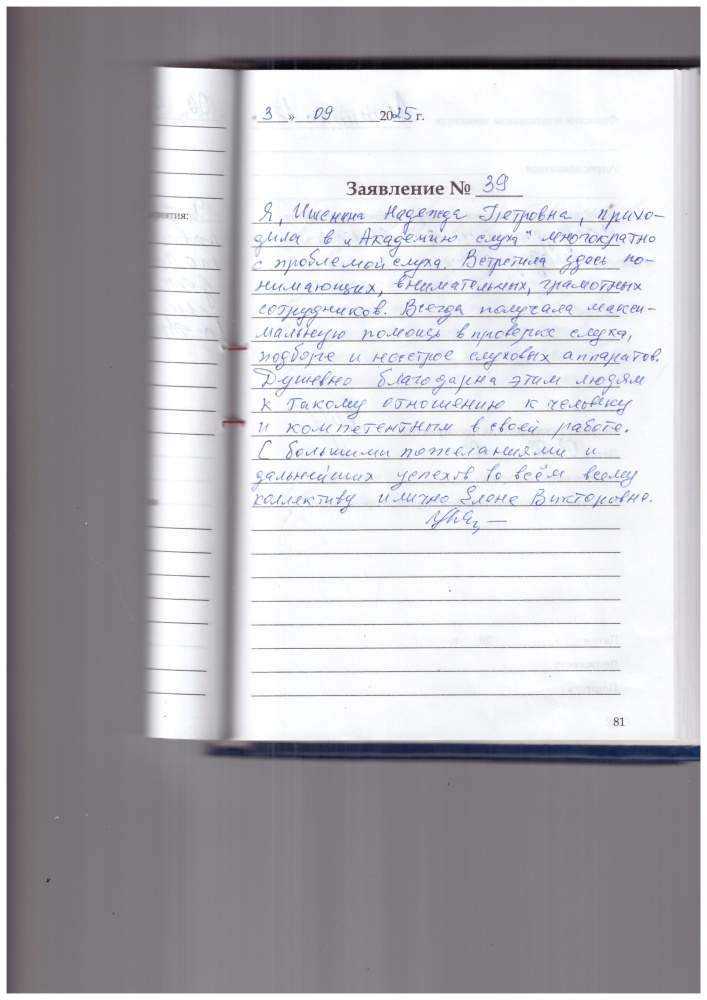 « 3 » 09 2025 г.
Заявление № 39
Я, Надежда Петровна, прихо-
дила в „Академию слуха" многократно
с проблемой слуха. Встретила здесь по-
нимающих, внимательных, грамотных
сотрудников. Всегда получала макси-
мальную помощь в проверке слуха,
подборе и настрое слуховых аппаратов.
Душевно благодарна этим людям
к такому отношению к человеку
и компетентным в своей работе.
С большими пожеланиями и
дальнейших успехов во всём всему
коллективу и лично Елене Викторовне.
81